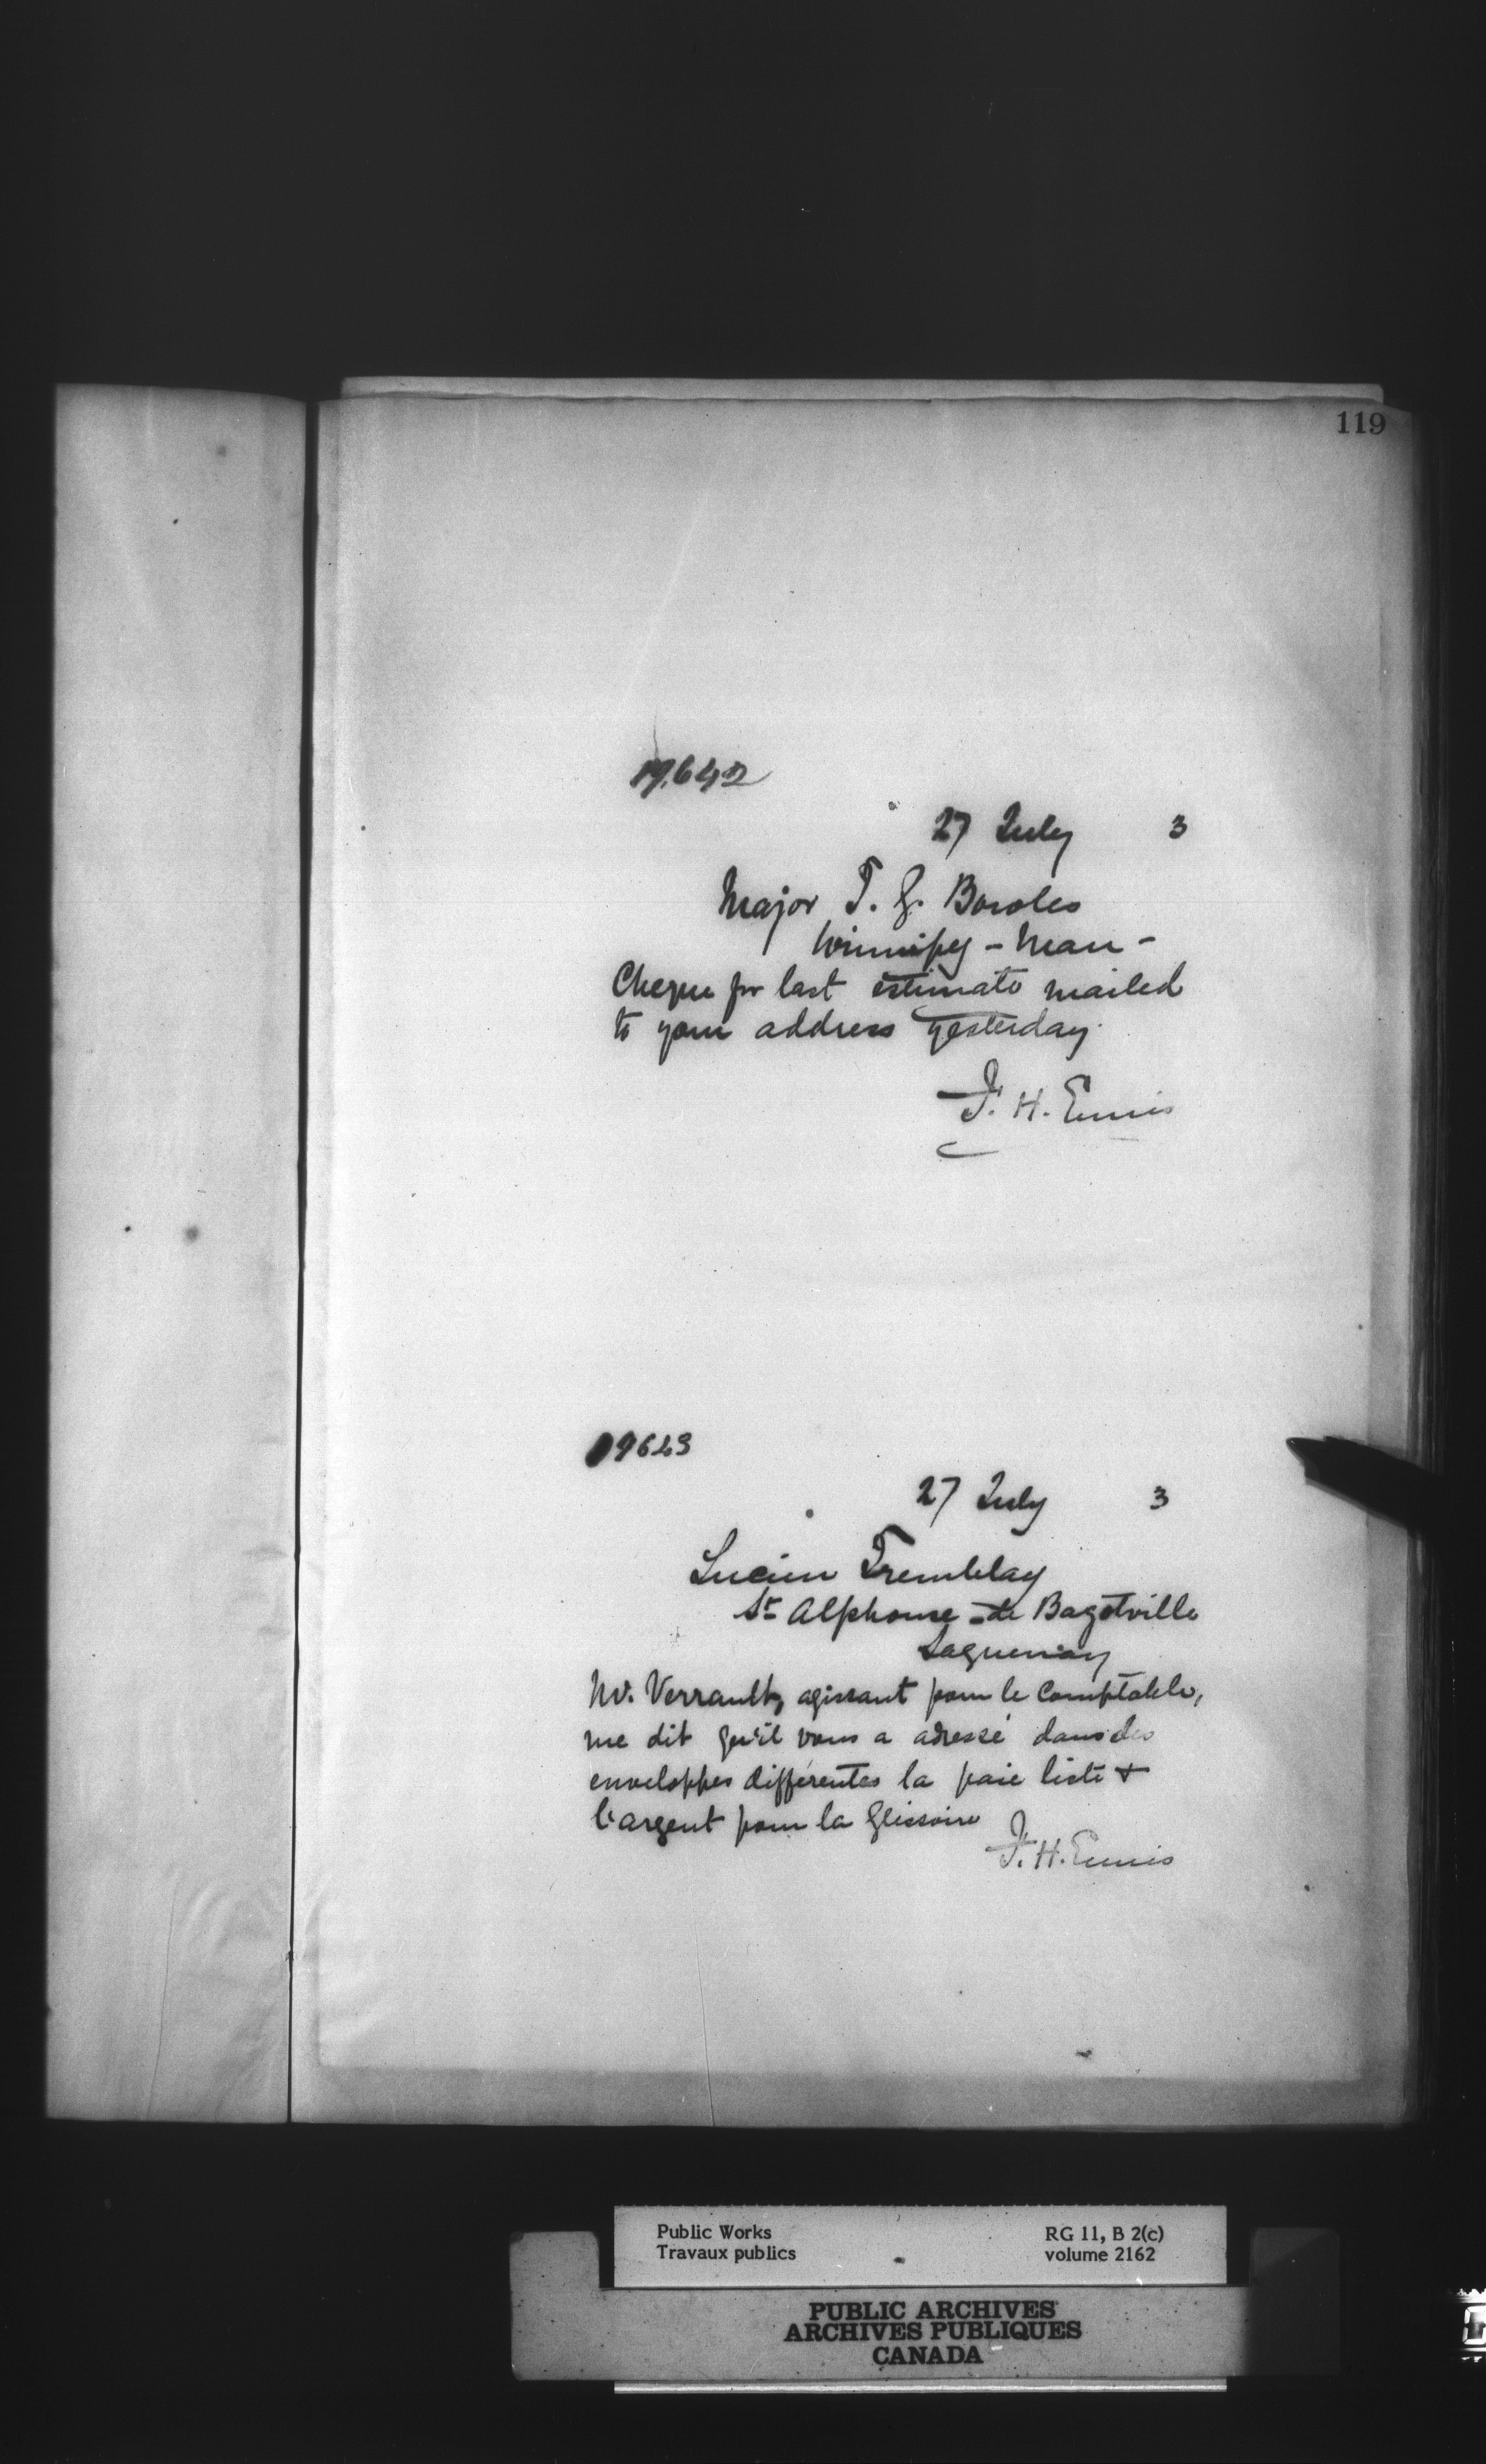 119
19642
27 July 3
Major T. G. Bowles
Winnipeg - Man -
Cheque for last estimate mailed
to your address yesterday.
F. H. Ennis
19643
27 July 3
Lucien Tremblay
St Alphonse de Bagotville
Saguenay
Mr. Verrault, agissant pour le comptable,
me dit qu'il vous a adressé dans des
enveloppes différentes la paie liste &
l'argent pour la glissoire
F. H. Ennis
Public Works
Travaux publics
RG 11, B 2(c)
volume 2162
PUBLIC ARCHIVES
ARCHIVES PUBLIQUES
CANADA